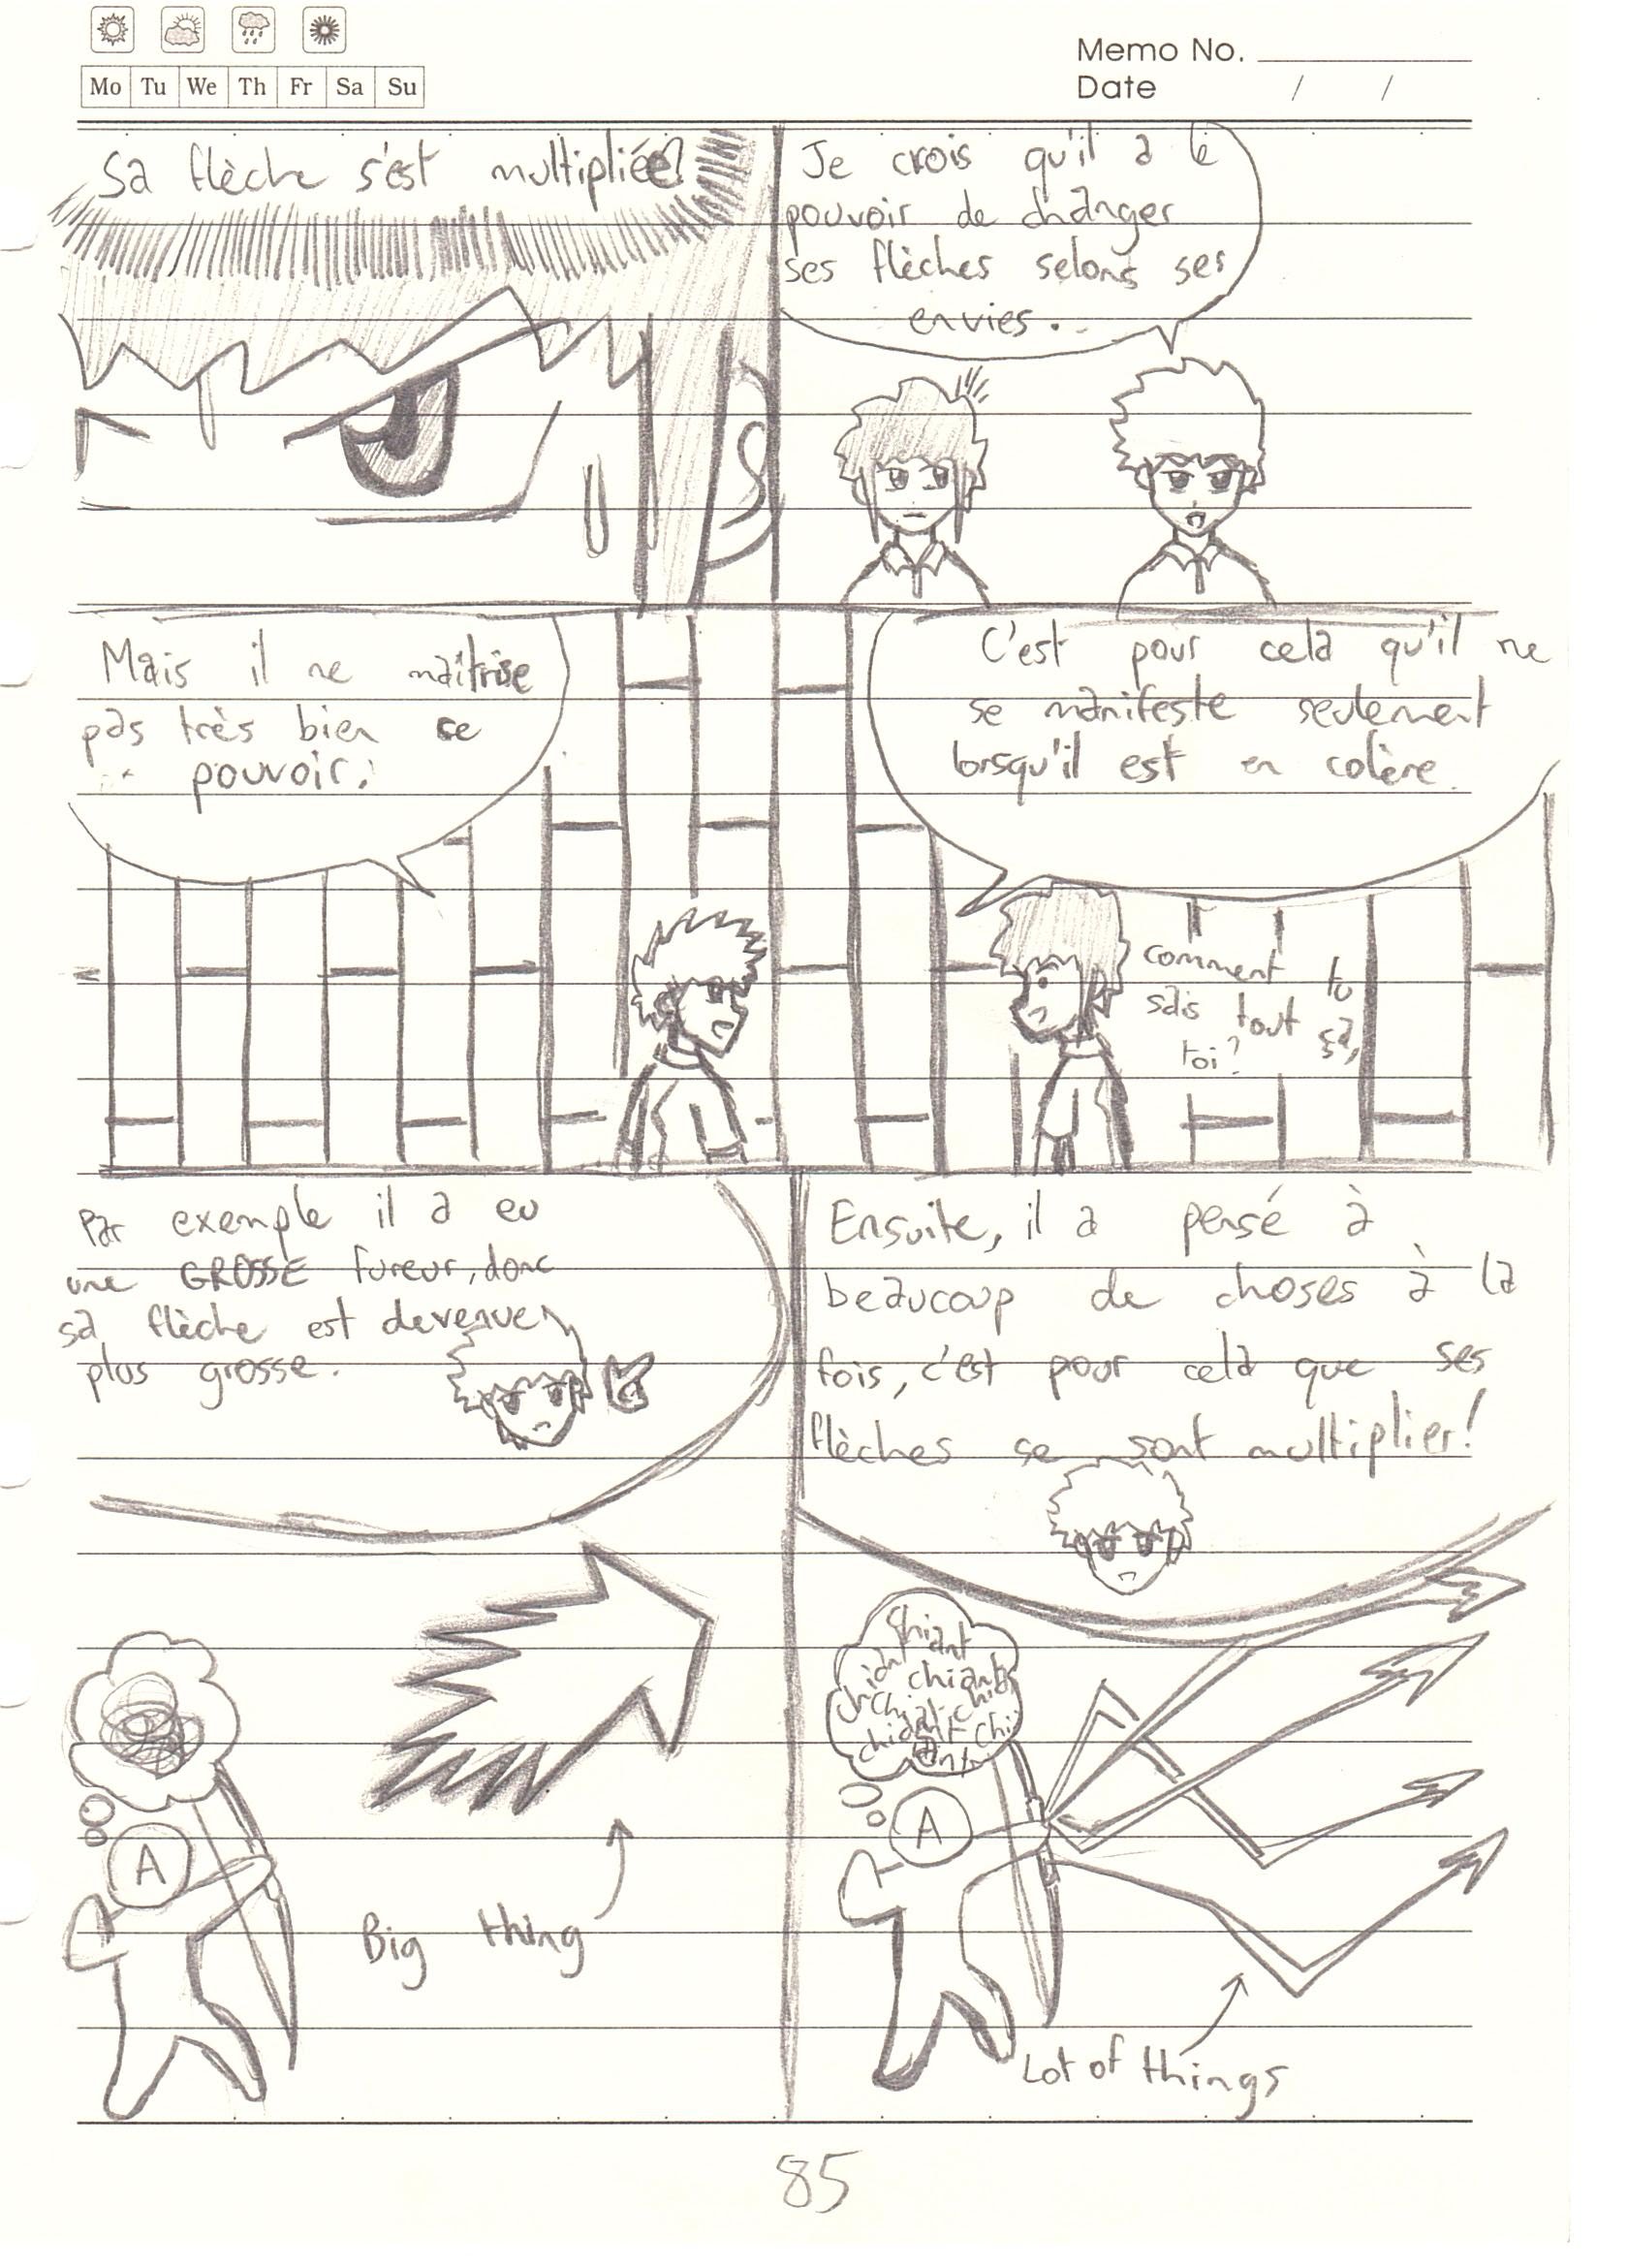 Memo No.
Date / /
Mo Tu We Th Fr Sa Su
Sa flèche s'est multipliée?
Je crois qu'il a le
pouvoir de changer
ses flèches selons ses
envies.
Mais il ne maîtrise
pas très bien ce
pouvoir.
C'est pour cela qu'il ne
se manifeste seulement
lorsqu'il est en colère.
comment tu
sais tout ça,
toi?
Par exemple il a eu
une GROSSE fureur, donc
sa flèche est devenue
plus grosse.
Ensuite, il a pensé à
beaucoup de choses à la
fois, c'est pour cela que ses
flèches se sont multiplier!
A
Big thing
chiant
chiant
A
Lot of things
85